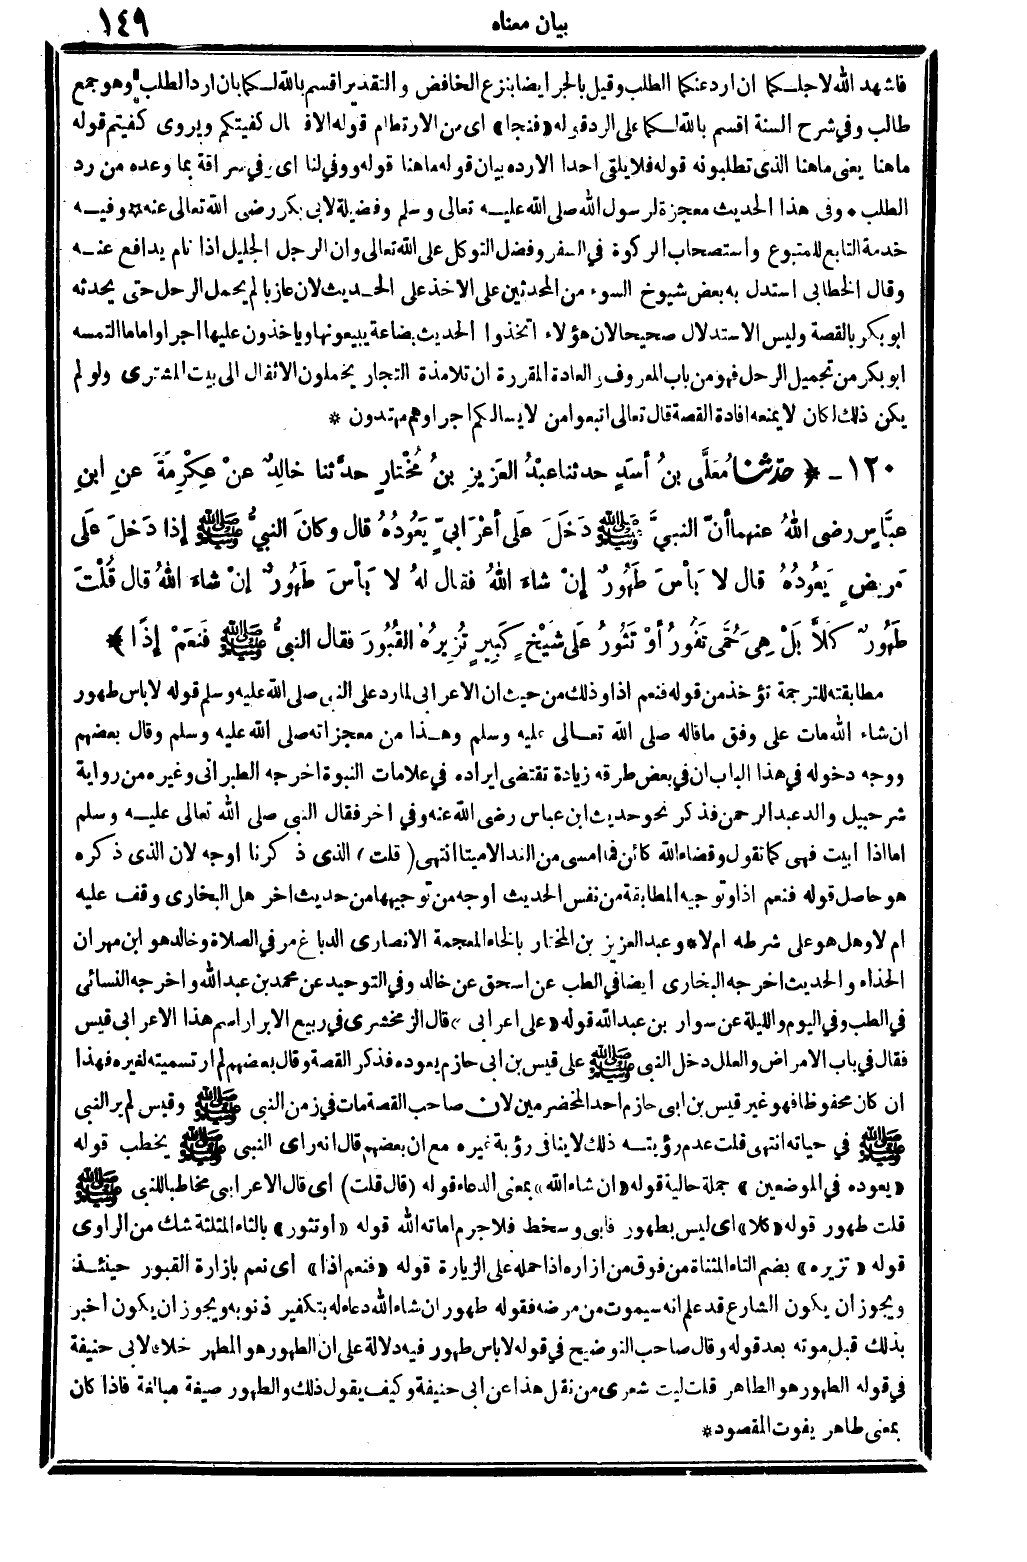 بيان معناه
١٤٩
فاشهد الله لاجلكما ان ارد عنكما الطلب وقيل بالجر ايضا بنزع الخافض والتقدير اقسم بالله لكما بان ارد الطلب وهو جمع
طالب وفي شرح السنة اقسم بالله لكما على الرد قوله «فنجا» اى من الارتطام قوله الا قال كفيتكم ويروى كفيتم قوله
ماهنا يعنى ماهنا الذى تطلبونه قوله فلا يلقى احدا الا رده بيان قوله ماهنا قوله ووفى لنا اى وفي سراقة بما وعده من رد
الطلب * وفى هذا الحديث معجزة لرسول الله صلى الله عليه تعالى وسلم وفضيلة لابى بكر رضى الله تعالى عنه * وفيه
خدمة التابع للمتبوع واستصحاب الركوة في السفر وفضل التوكل على الله تعالى وان الرجل الجليل اذا نام يدافع عنه
وقال الخطابى استدل به بعض شيوخ السوء من المحدثين على الاخذ على الحديث لان عازبا لم يحمل الرحل حتى يحدثه
ابو بكر بالقصة وليس الاستدلال صحيحا لان هؤلاء اتخذوا الحديث بضاعة يبيعونها وياخذون عليها اجرا واما ما التمسه
ابو بكر من تحميل الرحل فهو من باب المعروف والعادة المقررة ان تلامذة التجار يحملون الاثقال الى بيت المشترى ولو لم
يكن ذلك لكان لا يمنعه افادة القصة قال تعالى اتبعوا من لا يسالكم اجرا وهم مهتدون *
١٢٠ - ﴿ حدثنا مُعَلَّى بنُ أسَدٍ حدثنا عبْدُ العَزِيزِ بنُ مُخْتارٍ حدَّثنا خالِدٌ عنْ عِكْرِمَةَ عنِ ابنِ
عبَّاسٍ رضى اللهُ عنهما أنَّ النبيَّ ﷺ دَخَلَ عَلَى أعْرَابيٍّ يَعُودُهُ قال وكانَ النبيُّ ﷺ إذا دَخلَ عَلَى
مَرِيضٍ يَعُودُهُ قال لا بَأْسَ طَهُورٌ إنْ شاءَ اللهُ فقال لهُ لا بَأْسَ طَهُورٌ إنْ شاءَ اللهُ قال قُلْتَ
طَهُورٌ كَلاَّ بَلْ هِىَ حُمَّى تَفُورُ أوْ تَثُورُ عَلى شَيْخٍ كَبِيرٍ تُزِيرُهُ القُبُورَ فقال النبيُّ ﷺ فَنَعَمْ إذًا ﴾
مطابقته للترجمة تؤخذ من قوله فنعم اذا وذلك من حيث ان الاعرابى لما رد على النبى صلى الله عليه وسلم قوله لا باس طهور
ان شاء الله مات على وفق ماقاله صلى الله تعالى عليه وسلم وهذا من معجزاته صلى الله عليه وسلم وقال بعضهم
ووجه دخوله في هذا الباب ان في بعض طرقه زيادة تقتضى ايراده في علامات النبوة اخرجه الطبرانى وغيره من رواية
شرحبيل والد عبد الرحمن فذكر نحو حديث ابن عباس رضى الله عنه وفي اخر فقال النبى صلى الله تعالى عليه وسلم
اما اذا ابيت فهى كما تقول وقضاء الله كائن فما امسى من الغد الا ميتا انتهى (قلت) الذى ذكرنا اوجه لان الذى ذكره
هو حاصل قوله فنعم اذا وتوجيه المطابقة من نفس الحديث اوجه من توجيهها من حديث اخر هل البخارى وقف عليه
ام لا وهل هو على شرطه ام لا * وعبد العزيز بن المختار بالخاء المعجمة الانصارى الدباغ مر في الصلاة وخالد هو ابن مهران
الحذاء والحديث اخرجه البخارى ايضا في الطب عن اسحق عن خالد وفي التوحيد عن محمد بن عبد الله واخرجه النسائى
في الطب وفي اليوم والليلة عن سوار بن عبد الله قوله «على اعرابى» قال الزمخشرى في ربيع الابرار اسم هذا الاعرابى قيس
فقال في باب الامراض والعلل دخل النبى ﷺ على قيس بن ابى حازم يعوده فذكر القصة وقال بعضهم لم ار تسميته لغيره فهذا
ان كان محفوظا فهو غير قيس بن ابى حازم احد المخضرمين لان صاحب القصة مات في زمن النبى ﷺ وقيس لم ير النبى
ﷺ في حياته انتهى قلت عدم رؤيته ذلك لا ينافى رؤية غيره مع ان بعضهم قال انه راى النبى ﷺ يخطب قوله
«يعوده في الموضعين» جملة حالية قوله «ان شاء الله» بمعنى الدعاء قوله (قال قلت) أى قال الاعرابى مخاطبا للنبى ﷺ
قلت طهور قوله «كلا» اى ليس بطهور فابى وسخط فلا جرم اماته الله قوله «او تثور» بالثاء المثلثة شك من الراوى
قوله «تزيره» بضم التاء المثناة من فوق من ازاره اذا حمله على الزيارة قوله «فنعم اذا» أى نعم بازارة القبور حينئذ
ويجوز ان يكون الشارع قد علم انه سيموت من مرضه فقوله طهور ان شاء الله دعاء له بتكفير ذنوبه ويجوز ان يكون أخبر
بذلك قبل موته بعد قوله وقال صاحب التوضيح في قوله لا باس طهور فيه دلالة على ان الطهور هو المطهر خلاف لابى حنيفة
في قوله الطهور هو الطاهر قلت ليت شعرى من نقل هذا عن ابى حنيفة وكيف يقول ذلك والطهور صيغة مبالغة فاذا كان
بمعنى طاهر يفوت المقصود *